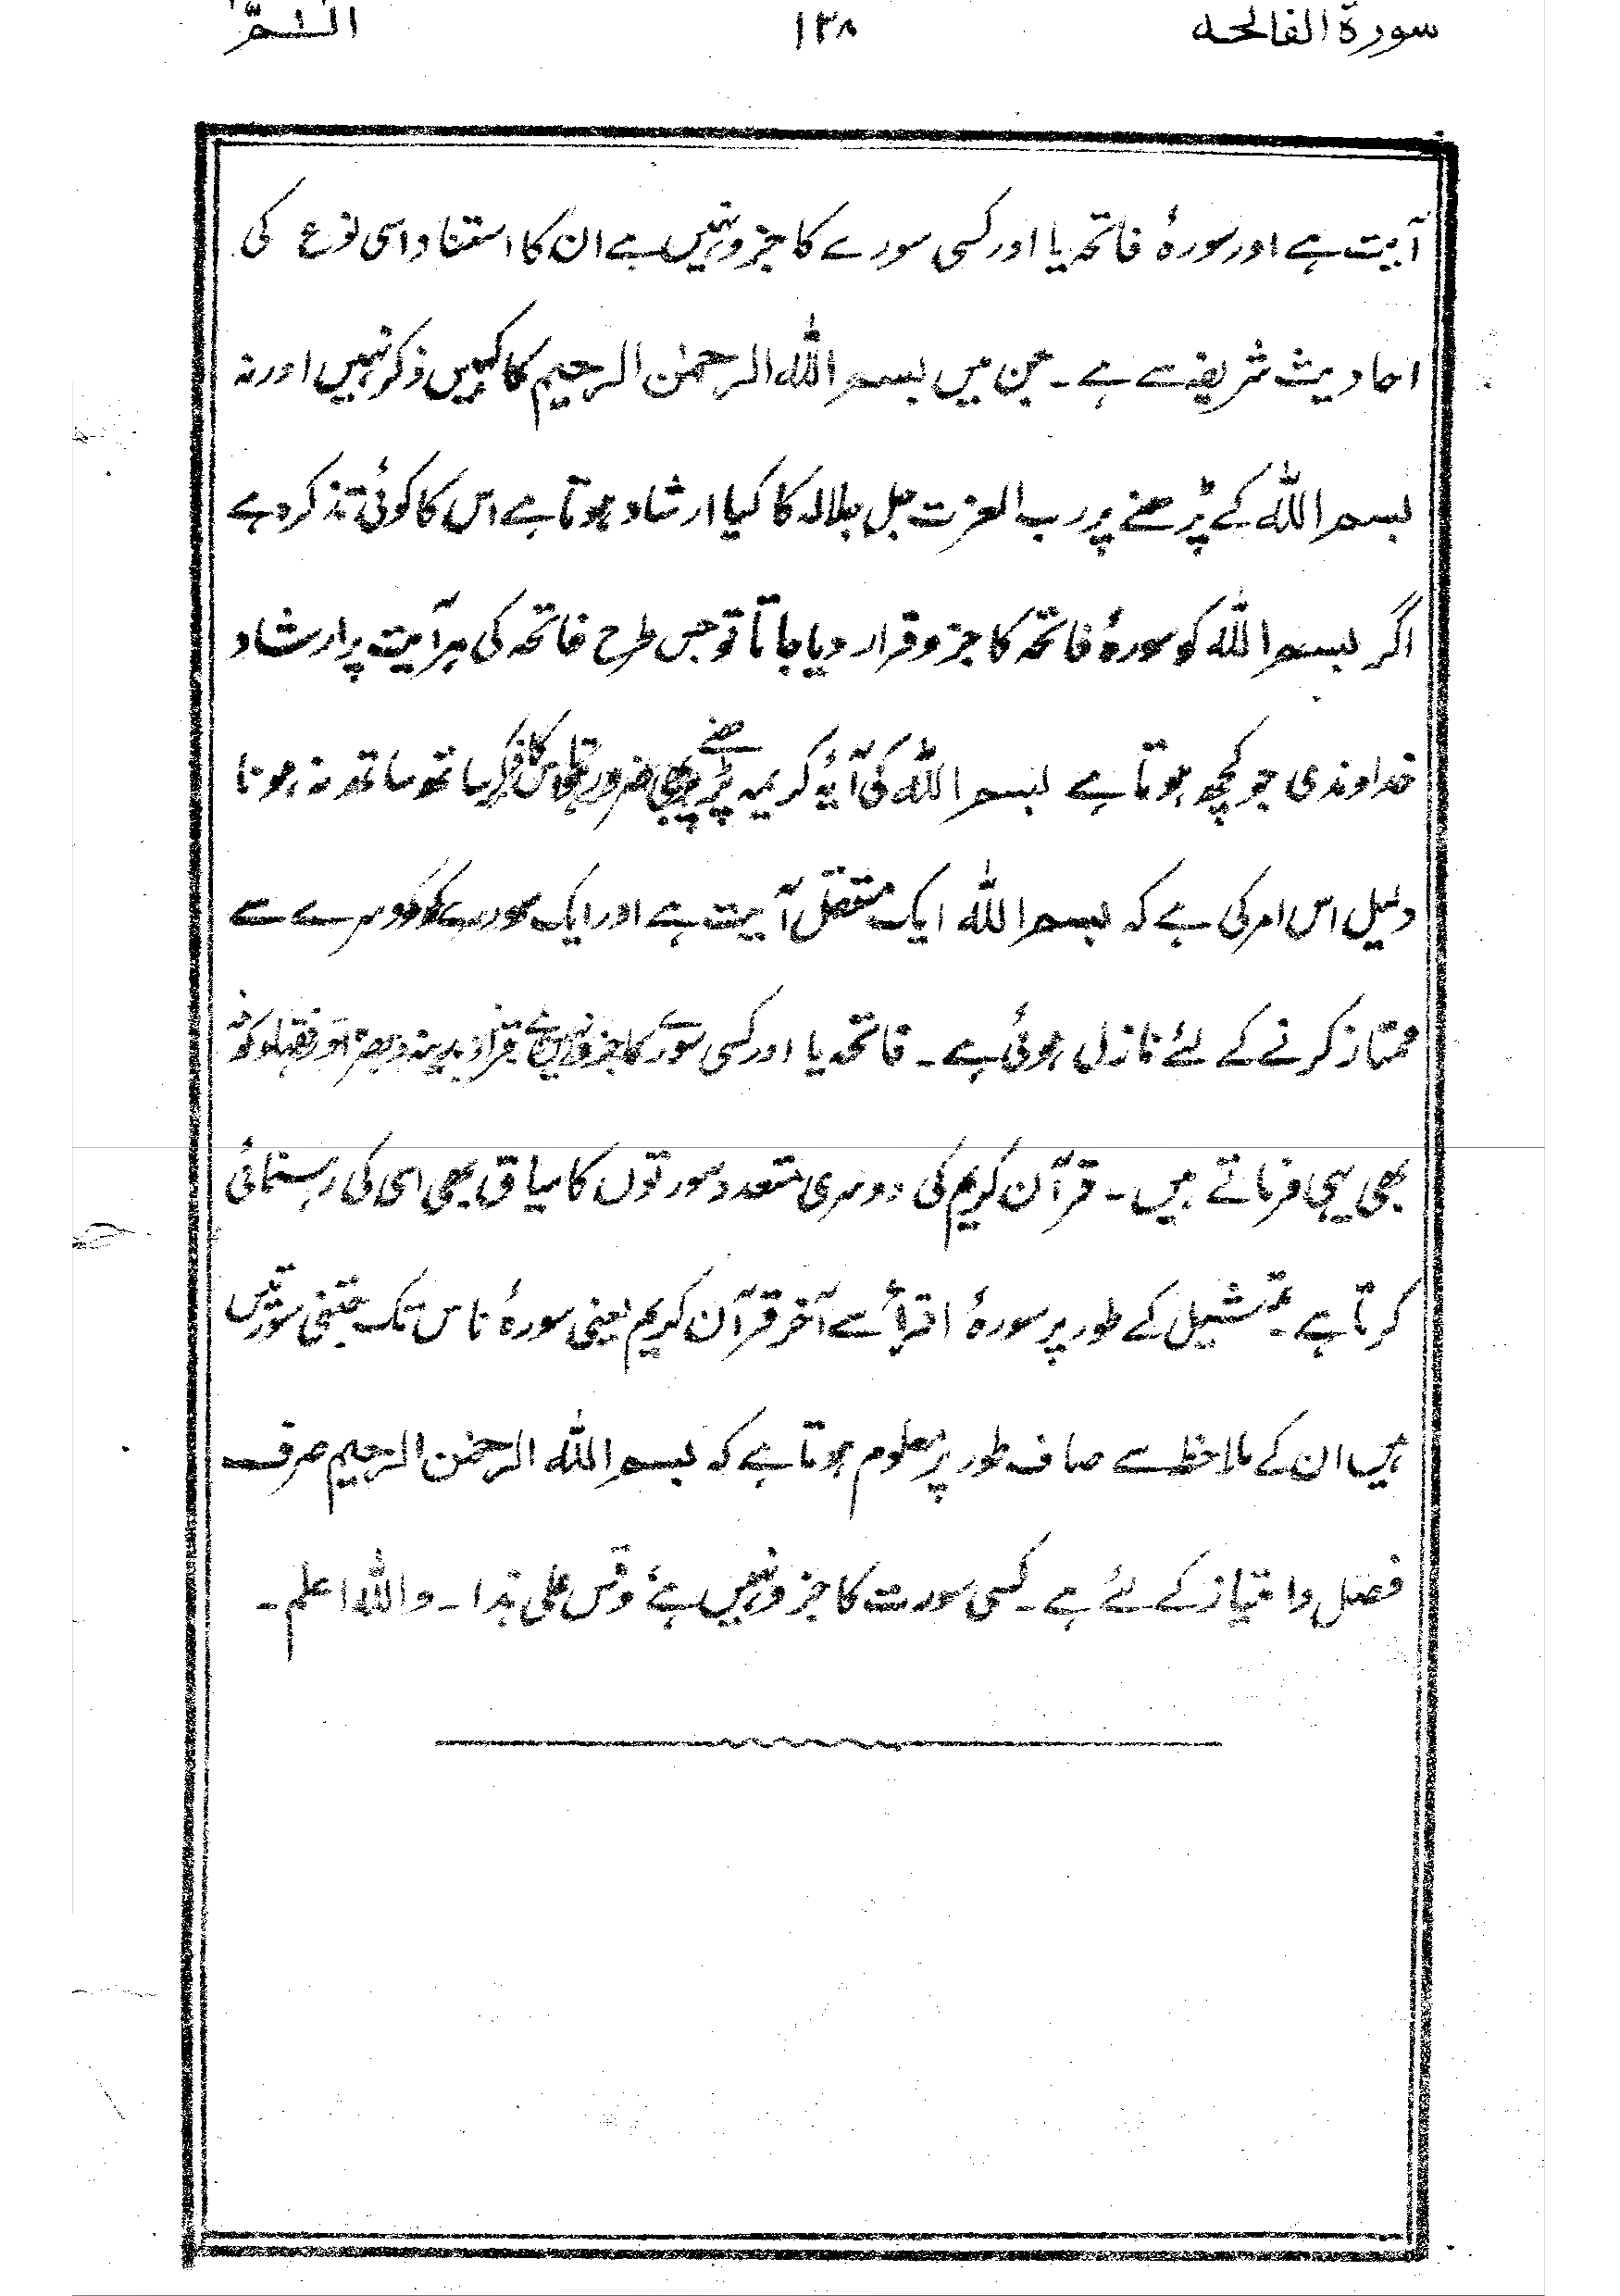 سورة الفاتحه ۱۳۸ الٓـمّٓ
آیت ہے اور سورۂ فاتحہ یا اور کسی سورے کا جزو نہیں ہے ان کا استناد اسی نوع کی
احادیث شریفہ سے ہے۔ جن میں بسم اللہ الرحمٰن الرحیم کا کہیں ذکر نہیں اور نہ
بسم اللہ کے پڑھنے پر رب العزت جل جلالہ کا کیا ارشاد ہوتا ہے اس کا کوئی تذکرہ ہے
اگر بسم اللہ کو سورۂ فاتحہ کا جزو قرار دیا جاتا تو جس طرح فاتحہ کی ہر آیت پر ارشاد
خداوندی جو کچھ ہوتا ہے بسم اللہ کی آیۂ کریمہ پڑھنے پر بھی ضرور ہوتا اس کا ذکر ساتھ ساتھ نہ ہونا
دلیل اس امر کی ہے کہ بسم اللہ ایک مستقل آیت ہے اور ایک سورے کو دوسرے سے
ممتاز کرنے کے لئے نازل ہوئی ہے۔ فاتحہ یا اور کسی سورے کا جزو نہیں ہے قراء مدینہ و بصرہ اور فقہاء کوفہ
بھی یہی فرماتے ہیں۔ قرآن کریم کی دوسری متعدد سورتوں کا سیاق بھی اسی کی رہنمائی
کرتا ہے۔ تمثیل کے طور پر سورۂ اقرأ سے آخر قرآن کریم یعنی سورۂ ناس تک جتنی سورتیں
ہیں ان کے ملاحظہ سے صاف طور پر معلوم ہوتا ہے کہ بسم اللہ الرحمٰن الرحیم صرف
فصل وامتیاز کے لئے ہے۔ کسی سورت کا جزو نہیں ہے وقس علی ہذا۔ واللہ اعلم۔